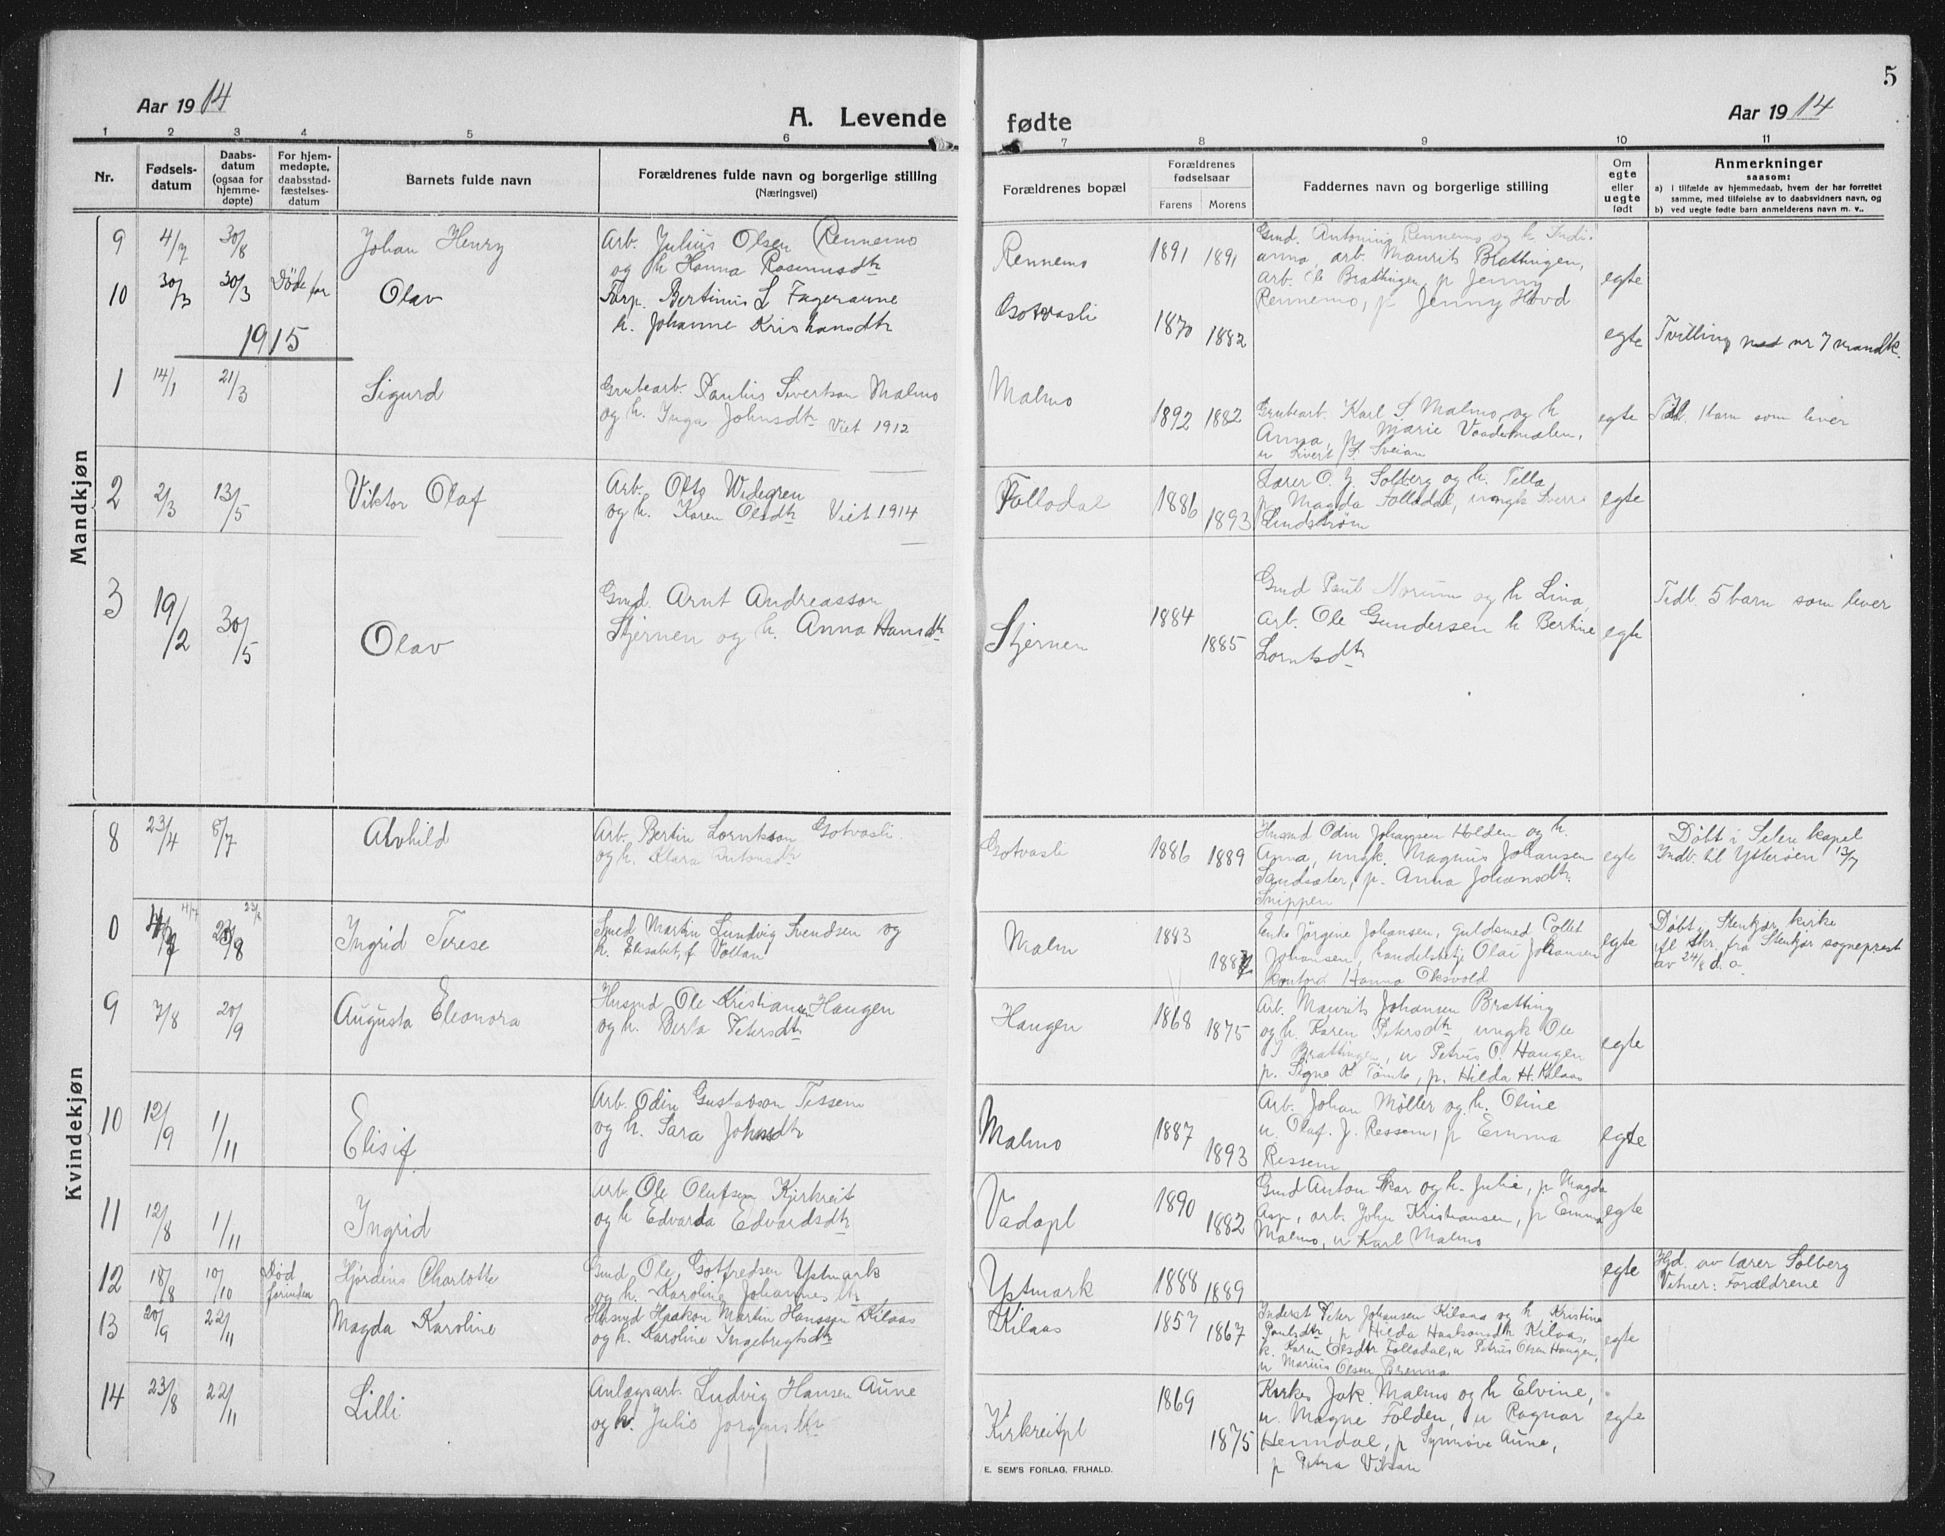 5
Aar 1914
A. Levende
fødte
Aar 1914
1 2 3 4 5 6 7 8 9 10 11
Nr.
Fødsels-
datum
Daabs-
datum
(ogsaa for
hjemme-
døpte)
For hjem-
medøpte,
daabsstad-
fæstelses-
datum
Barnets fulde navn
Forældrenes fulde navn og borgerlige stilling
(Næringsvei)
Forældrenes bopæl
Forældrenes
fødselsaar
Farens Morens
Faddernes navn og borgerlige stilling
Om
egte
eller
uegte
født
Anmerkninger
saasom:
a) i tilfælde av hjemmedaab, hvem der har forrettet
samme, med tilføielse av to daabsvidners navn, og
b) ved uegte fødte barn anmelderens navn m. v..
Mandkjøn
9 4/7 30/8 Johan Henry
Arb. Julius Olsen (Rennemo
og h Hanna Rasmusdtr
Rennemo 1891 1891
Gmd. Antonius Rennemo og h. Indi-
anna, arb. Maurits Brattingen,
Arb. Ole Brattingen, p Jenny
Rennemo, p Jenny Hovd
egte
10 30/3 30/3 Døde før Olav
Forp. Bertinus L Fageraune
h. Johanne Kristiansdtr
Gotvasli 1870 1882
egte
Tvilling med nr 7 mandk.
1915
1 14/1 21/3 Sigurd
Grubearb. Paulus Sivertsen Malmo
og h. Inga Johnsdtr Viet 1912
Malmo 1892 1882
Grubearb. Karl S Malmo og h
Anna, p Marie Vaademalen,
u Sivert P. Sveian
egte
Tidl. 1 barn som lever
2 2/3 13/5 Viktor Olaf
Arb. Otto Widegren
og h. Karen Olsdtr Viet 1914
Follodal 1886 1893
Lærer O. J. Solberg og h. Tella
p. Magda Follodal, ungk Sverre
Lindstrøm
egte
3 19/2 30/5 Olav
Gmd. Arnt Andreasson
Stjernen og h. Anna Hansdtr
Stjernen 1884 1885
Gmd Paul Norum og h Lina,
Arb. Ole Gundersen h Bertine
Lorntsdtr
egte
Tidl. 5 barn som lever
Kvindekjøn
8 23/4 8/7 Alvhild
Arb. Bertin Lorntson Gotvasli
og h. Klara Antonsdtr
Gotvasli 1886 1889
Husmd Odin Johansen Holden og h.
Anna, ungk. Magnus Johansen
Sandsæter, p. Anna Johansdtr.
Snippen
egte
Døbt i Selen kapel
Indb. til Ytterøen 13/7
0 4/7 23/8 Ingrid Terese
Smed Martin Lundvig Svendsen og
h. Elisabet, f Vollan
Malm 1883
Enke Jörgine Johansen, Guldsmed Collet
Johansen, handelsbetj Olai Johansen
Hanna Oksvold
egte
Døbt i Stenkjær kirke
ifl skr. fra Stenkjær sogneprest
av 24/8 d. a.
9 7/8 20/9 Augusta Eleonora
Husmd Ole Kristiansen Haugen
og h. Berta Petersdtr
Haugen 1868 1875
Arb. Maurits Johansen Bratting
og h. Karen Petersdtr ungk Ole
J Brattingen, u Petrus O. Haugen
p. Signe K Tömte, p. Hilda H. Kilaas
egte
10 12/9 1/11 Elisif
Arb. Odin Gustavson Tessem
og h. Sara Johnsdtr
Malmo 1887 1893
Arb. Johan Møller og h. Oline
u. Olaf J. Ressem, p Emma
Ressem
egte
11 12/8 1/11 Ingrid
Arb. Ole Olufsen Kjirkreit
og h Edvarda Edvardsdtr
Vadapl 1890 1882
Gmd Anton Skar og h. Julie, p Magda
Asp, arb. John Kristiansen, p Emma
Malmo, u Karl Malmo
egte
12 18/8 10/10 Død forinden Hjördius Charlotte
Gmd Ole Gotfredsen Ystmark
og h. Karoline Johannesdtr
Ystmark 1888 1889
egte
Hjd. av lærer Solberg
Vitner: Forældrene
13 20/9 22/11 Magda Karoline
Husmd Haakon Martin Hanssen Kilaas
og h. Karoline Ingebrigtsdtr
Kilaas 1857 1867
Inderst Peter Johansen Kilaas og h Kristine
Paulsdtr, p Hilda Haakonsdtr Kilaas,
k. Karen Olsdtr Follodal, u Petrus Olsen Haugen,
u Marius Olsen Brenna
egte
14 23/8 22/11 Lilli
Anlægsarb. Ludvig Hansen Aune
og h. Julie Jörgensdtr
Kirkreitpl 1869 1875
Kirkes Jak. Malmo og h Elvine,
u. Magne Folden, u Ragnar
Heimdal, p Synnöve Aune,
p Petra Viksan
egte
E. SEM'S FORLAG, FR.HALD.